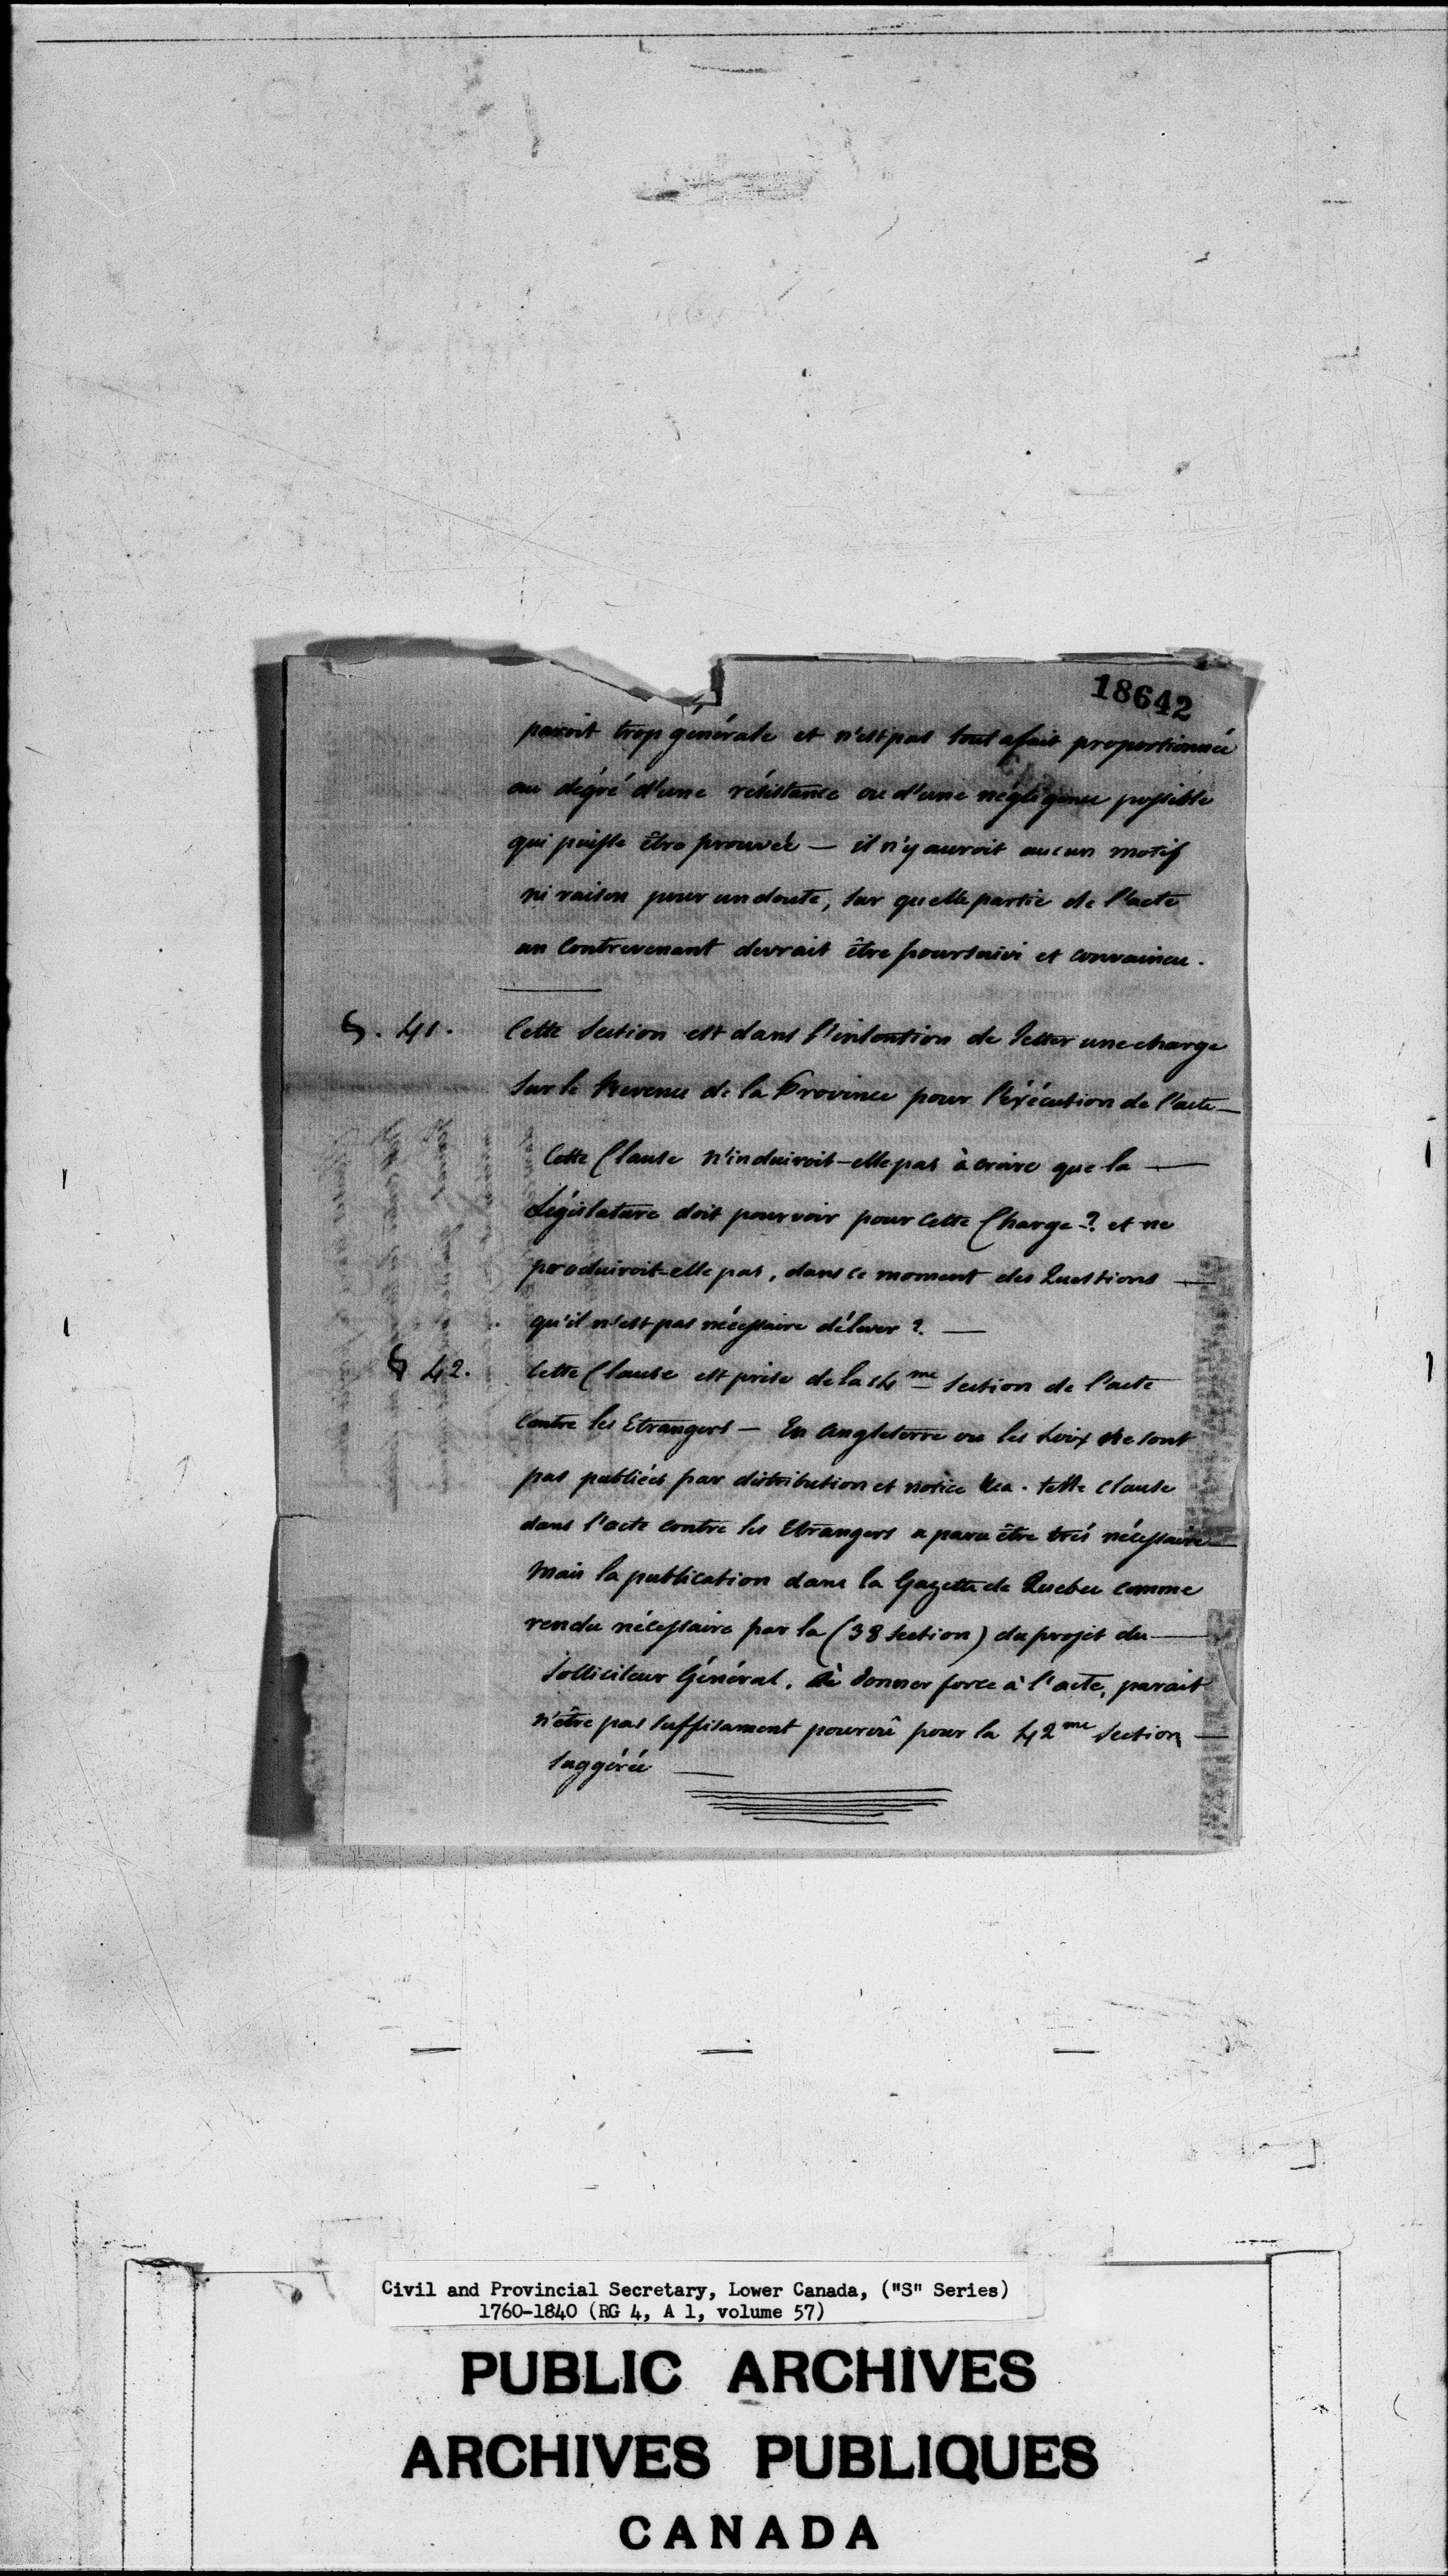 18642
paroit trop générale et n'est pas tout afait proportionnée
au dégré d'une résistance ou d'une négligence possible
qui puisse être prouvée — il n'y auroit aucun motif
ni raison pour un doute, sur quelle partie de l'acte
un Contrevenant devrait être poursuivi et convaincu.
§. 41. Cette Section est dans l'intention de Jetter une charge
Sur le Revenu de la Province pour l'éxécution de l'acte —
Cette Clause n'induiroit-elle pas à croire que la —
Législature doit pourvoir pour cette Charge? et ne
produiroit-elle pas, dans ce moment des Questions —
qu'il n'est pas nécessaire d'élever? —
§ 42. Cette Clause est prise de la 14me Section de l'acte
Contre les Etrangers — En Angleterre ou les Loix ne sont
pas publiées par distribution et notice &ca. Cette clause
dans l'acte contre les Etrangers a paru être trés nécessaire —
Mais la publication dans la Gazette de Quebec comme
rendu nécessaire par la (38 Section) du projet du —
Solliciteur Général, à donner force à l'acte, parait
n'être pas suffisament pourvû pour la 42me Section —
Suggérée —
Civil and Provincial Secretary, Lower Canada, ("S" Series)
1760-1840 (RG 4, A 1, volume 57)
PUBLIC ARCHIVES
ARCHIVES PUBLIQUES
CANADA